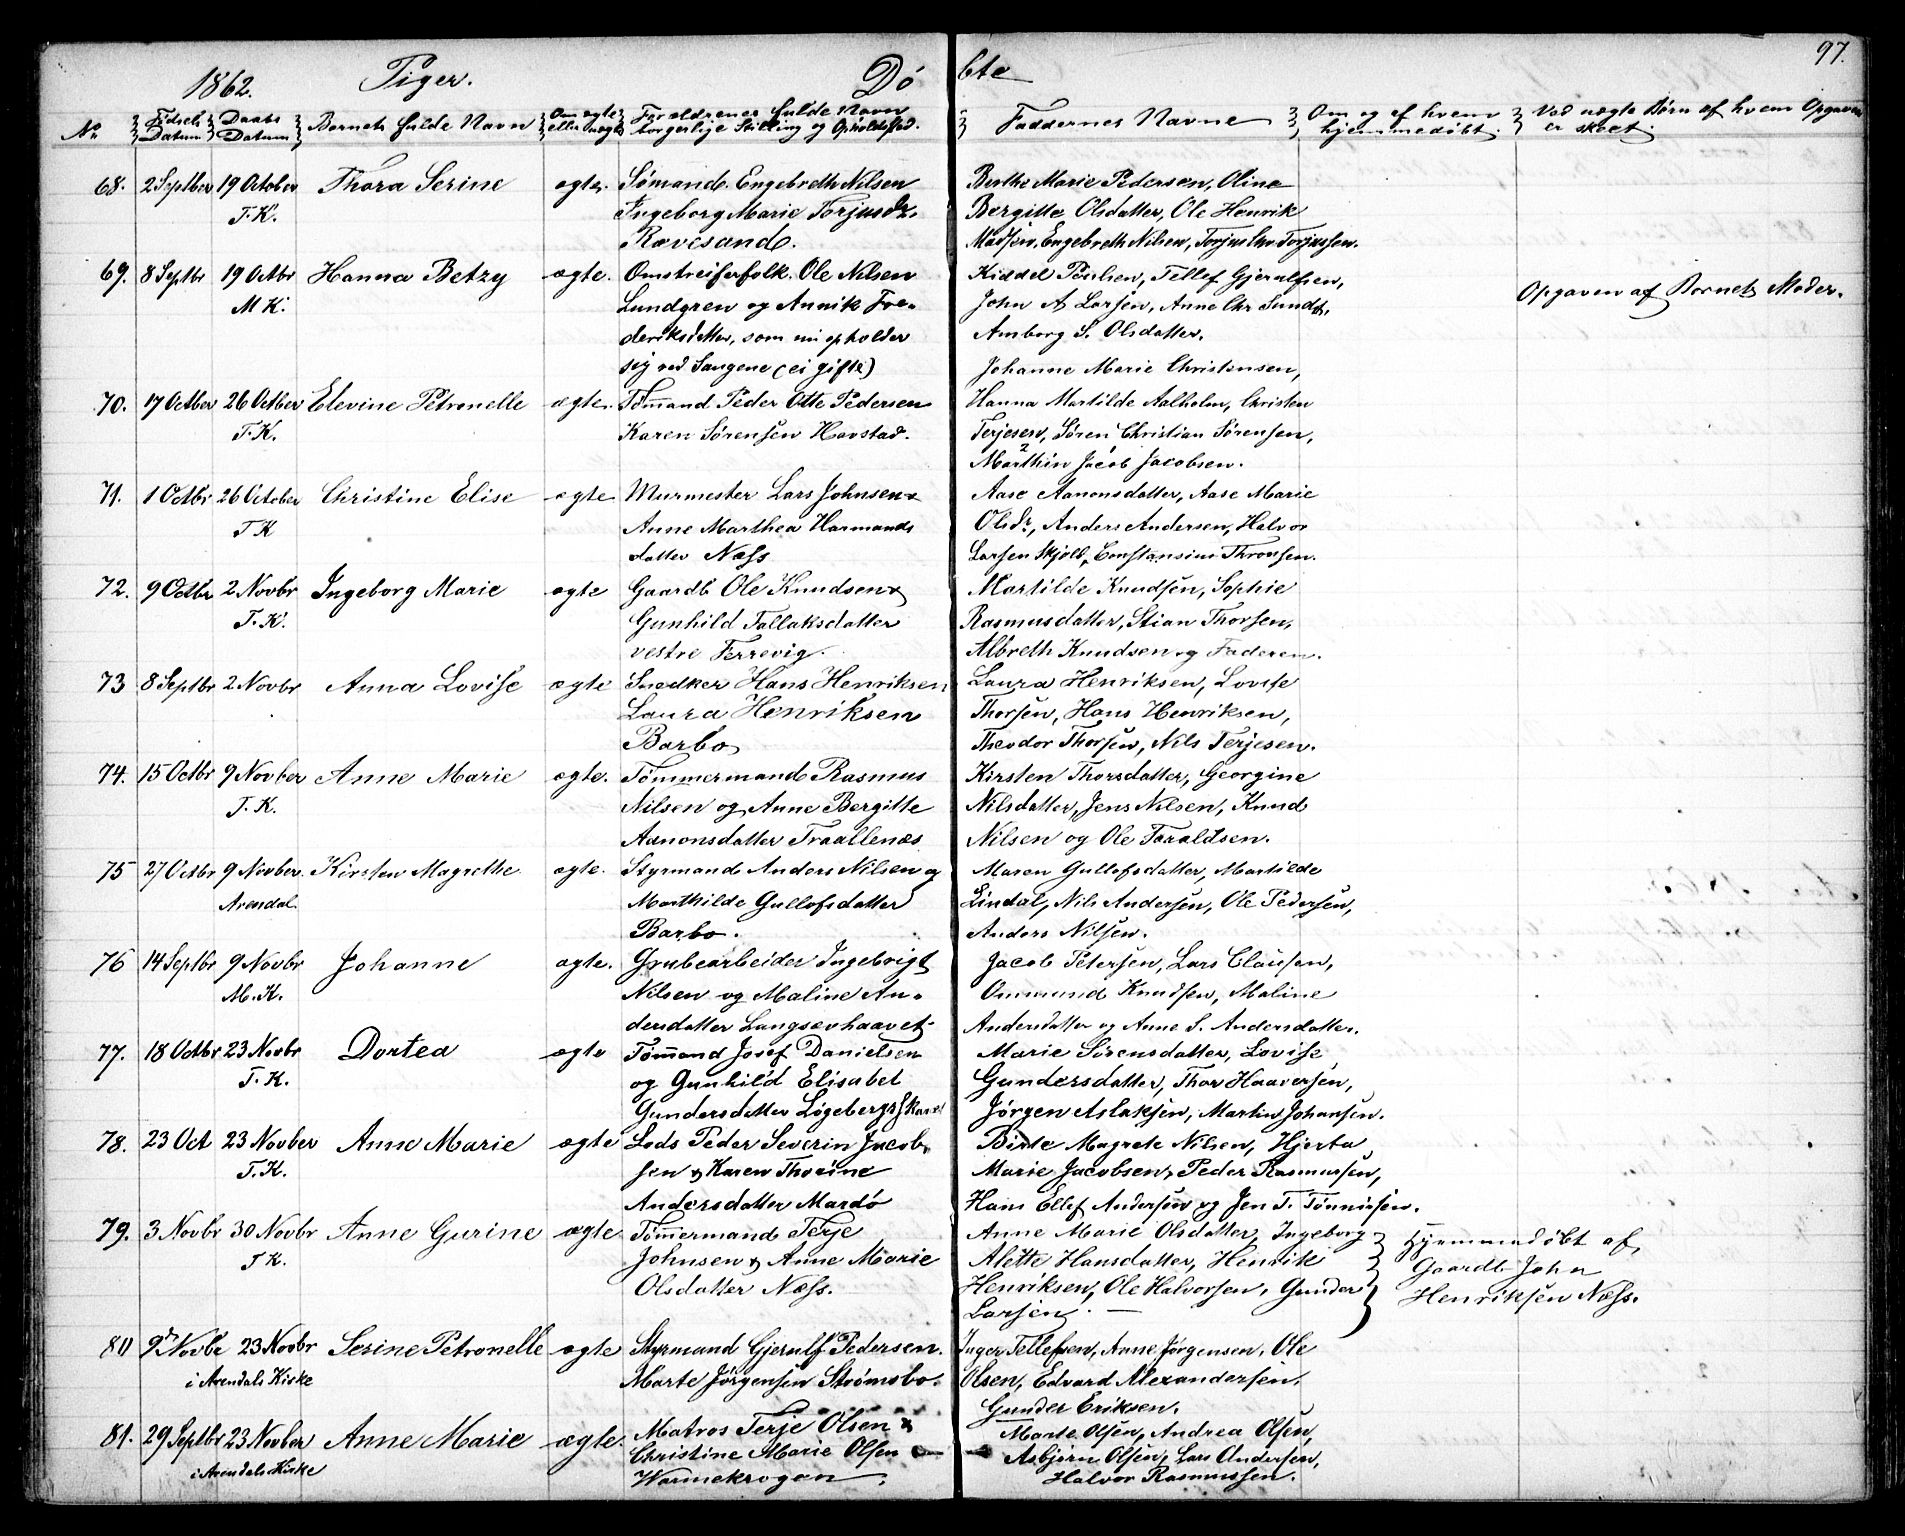 97.
1862. Piger. Dö bte
No Födsels Datum Daabs Datum Barnets fulde Navn Om ægte eller uægte Foræeldrenes fulde Navn borgerlige Stilling og Opholdssted. Faddernes Navne Om og af hvem hjemmedøbt. Ved uægte Børn af hvem Opgaven er skeet.
68. 2 Septber 19 October Thora Serine ægte. Sømand. Engebreth Nilsen Berthe Marie Pedersen, Oline
T. K. Ingeborg Marie Torjusdr. Bergitte Olsdatter, Ole Henrik
Rævesand. Madsen, Engebreth Nilsen, Torjus Chr Torjussen.
69. 8 Septbr 19 Octbr Hanna Betzy ægte. Omstreiferfolk. Ole Nilsen Kiddel Poulsen, Tellef Gjerulfsen,
M K. Lundgren og Annik Fre- John A Larsen, Anne Chr Sundt, Opgaven af Barnets Moder.
deriksdatter, som nu opholder Amborg S. Olsdatter.
sig ved Langene (ei gifte) Johanne Marie Christensen,
70. 17 Octber 26 Octber Elevine Petronelle ægte. Tømand Peder Otte Pedersen Hanna Martilde Aalholm, Christen
T. K. Karen Sörensen Havstad. Terjesen, Sören Christian Sörensen,
Marthin Jacob Jacobsen.
71. 1 Octbr 26 October Christine Elise ægte Murmester Lars Johnsen & Aase Aanonsdatter, Aase Marie
T K Anne Marthea Harmands Olsdr, Anders Andersen, Halvor
datter Næss Larsen Skjold, Constansius Thronsen.
72. 9 Octbr 2 Novbr Ingeborg Marie ægte Gaardb Ole Knudsen & Martilde Knudsen, Sophie
T. K. Gunhild Tallaksdatter Rasmusdatter, Stian Thorsen,
vestre Terrevig. Albreth Knudsen og Faderen.
73 8 Septbr 2 Novbr Anna Lovise ægte Snedker Hans Henriksen Laura Henriksen, Lovise
Laura Henriksen Thorsen, Hans Henriksen,
Barbo Theodor Thorsen, Nils Terjesen.
74. 15 Octbr 9 Novber Anne Marie ægte. Tømmermand Rasmus Kirsten Thorsdatter, Georgine
T. K. Nilsen og Anne Bergitte Nilsdatter, Jens Nilsen, Knud
Aanonsdatter Traallenæs Nilsen og Ole Taraldsen.
75 27 Octbr 9 Novber. Kirsten Magrethe ægte. Styrmand Anders Nilsen og Maren Gullofsdatter, Martilde
Arendal. Marthilde Gullofsdatter Lindal, Nils Andersen, Ole Pedersen,
Barbo. Anders Nilsen.
76 14 Septbr 9 Novbr Johanne ægte. Grubearbeider Ingebrigt Jacob Petersen, Lars Clausen,
M. K. Nilsen og Maline An- Ommund Knudsen, Maline
dersdatter Langsevhaavet Andersdatter og Anne S. Andersdatter.
77. 18 Octbr 23 Novbr Dortea ægte Tømand Josef Danielsen Marie Sörensdatter, Lovise
T. K. og Gunhild Elisabet Gundersdatter, Thor Haaversen,
Gundersdatter Løgebergskaret Jörgen Aslaksen, Martin Johansen.
78. 23 Oct 23 Novber Anne Marie ægte Lods Peder Severin Jacob- Birte Magrete Nilsen, Hjerta
T. K. sen & Karen Thorine Marie Jacobsen, Peder Rasmussen,
Andersdatter Mardö Hans Ellef Andersen og Jen T. Tönnisen.
79. 3 Novbr 30 Novbr Anne Gurine ægte Tømmermand Terje Anne Marie Olsdatter, Ingeborg Hjemmedøbt af
T K. Johnsen & Anne Marie Alette Hansdatter, Henrik Gaardb John
Olsdatter Næss. Henriksen, Ole Halvorsen, Gunder Henriksen Næss.
Larsen. —
80 9de Novbr 23 Novbr Serine Petronelle ægte Styrmand Gjerulf Pedersen. Inger Tellefsen, Anne Jørgensen, Ole
i Arendals Kirke Marte Jørgensen Strømsbo. Olsen, Edvard Alexandersen.
Gunder Eriksen.
81. 29 Septbr 23 Novber Anne Marie ægte. Matros Terje Olsen & Marte Olsen, Andrea Olsen,
i Arendals Kirke Christine Marie Olsen Asbjörn Olsen, Lars Andersen,
Warmekrogen Halvor Rasmussen.